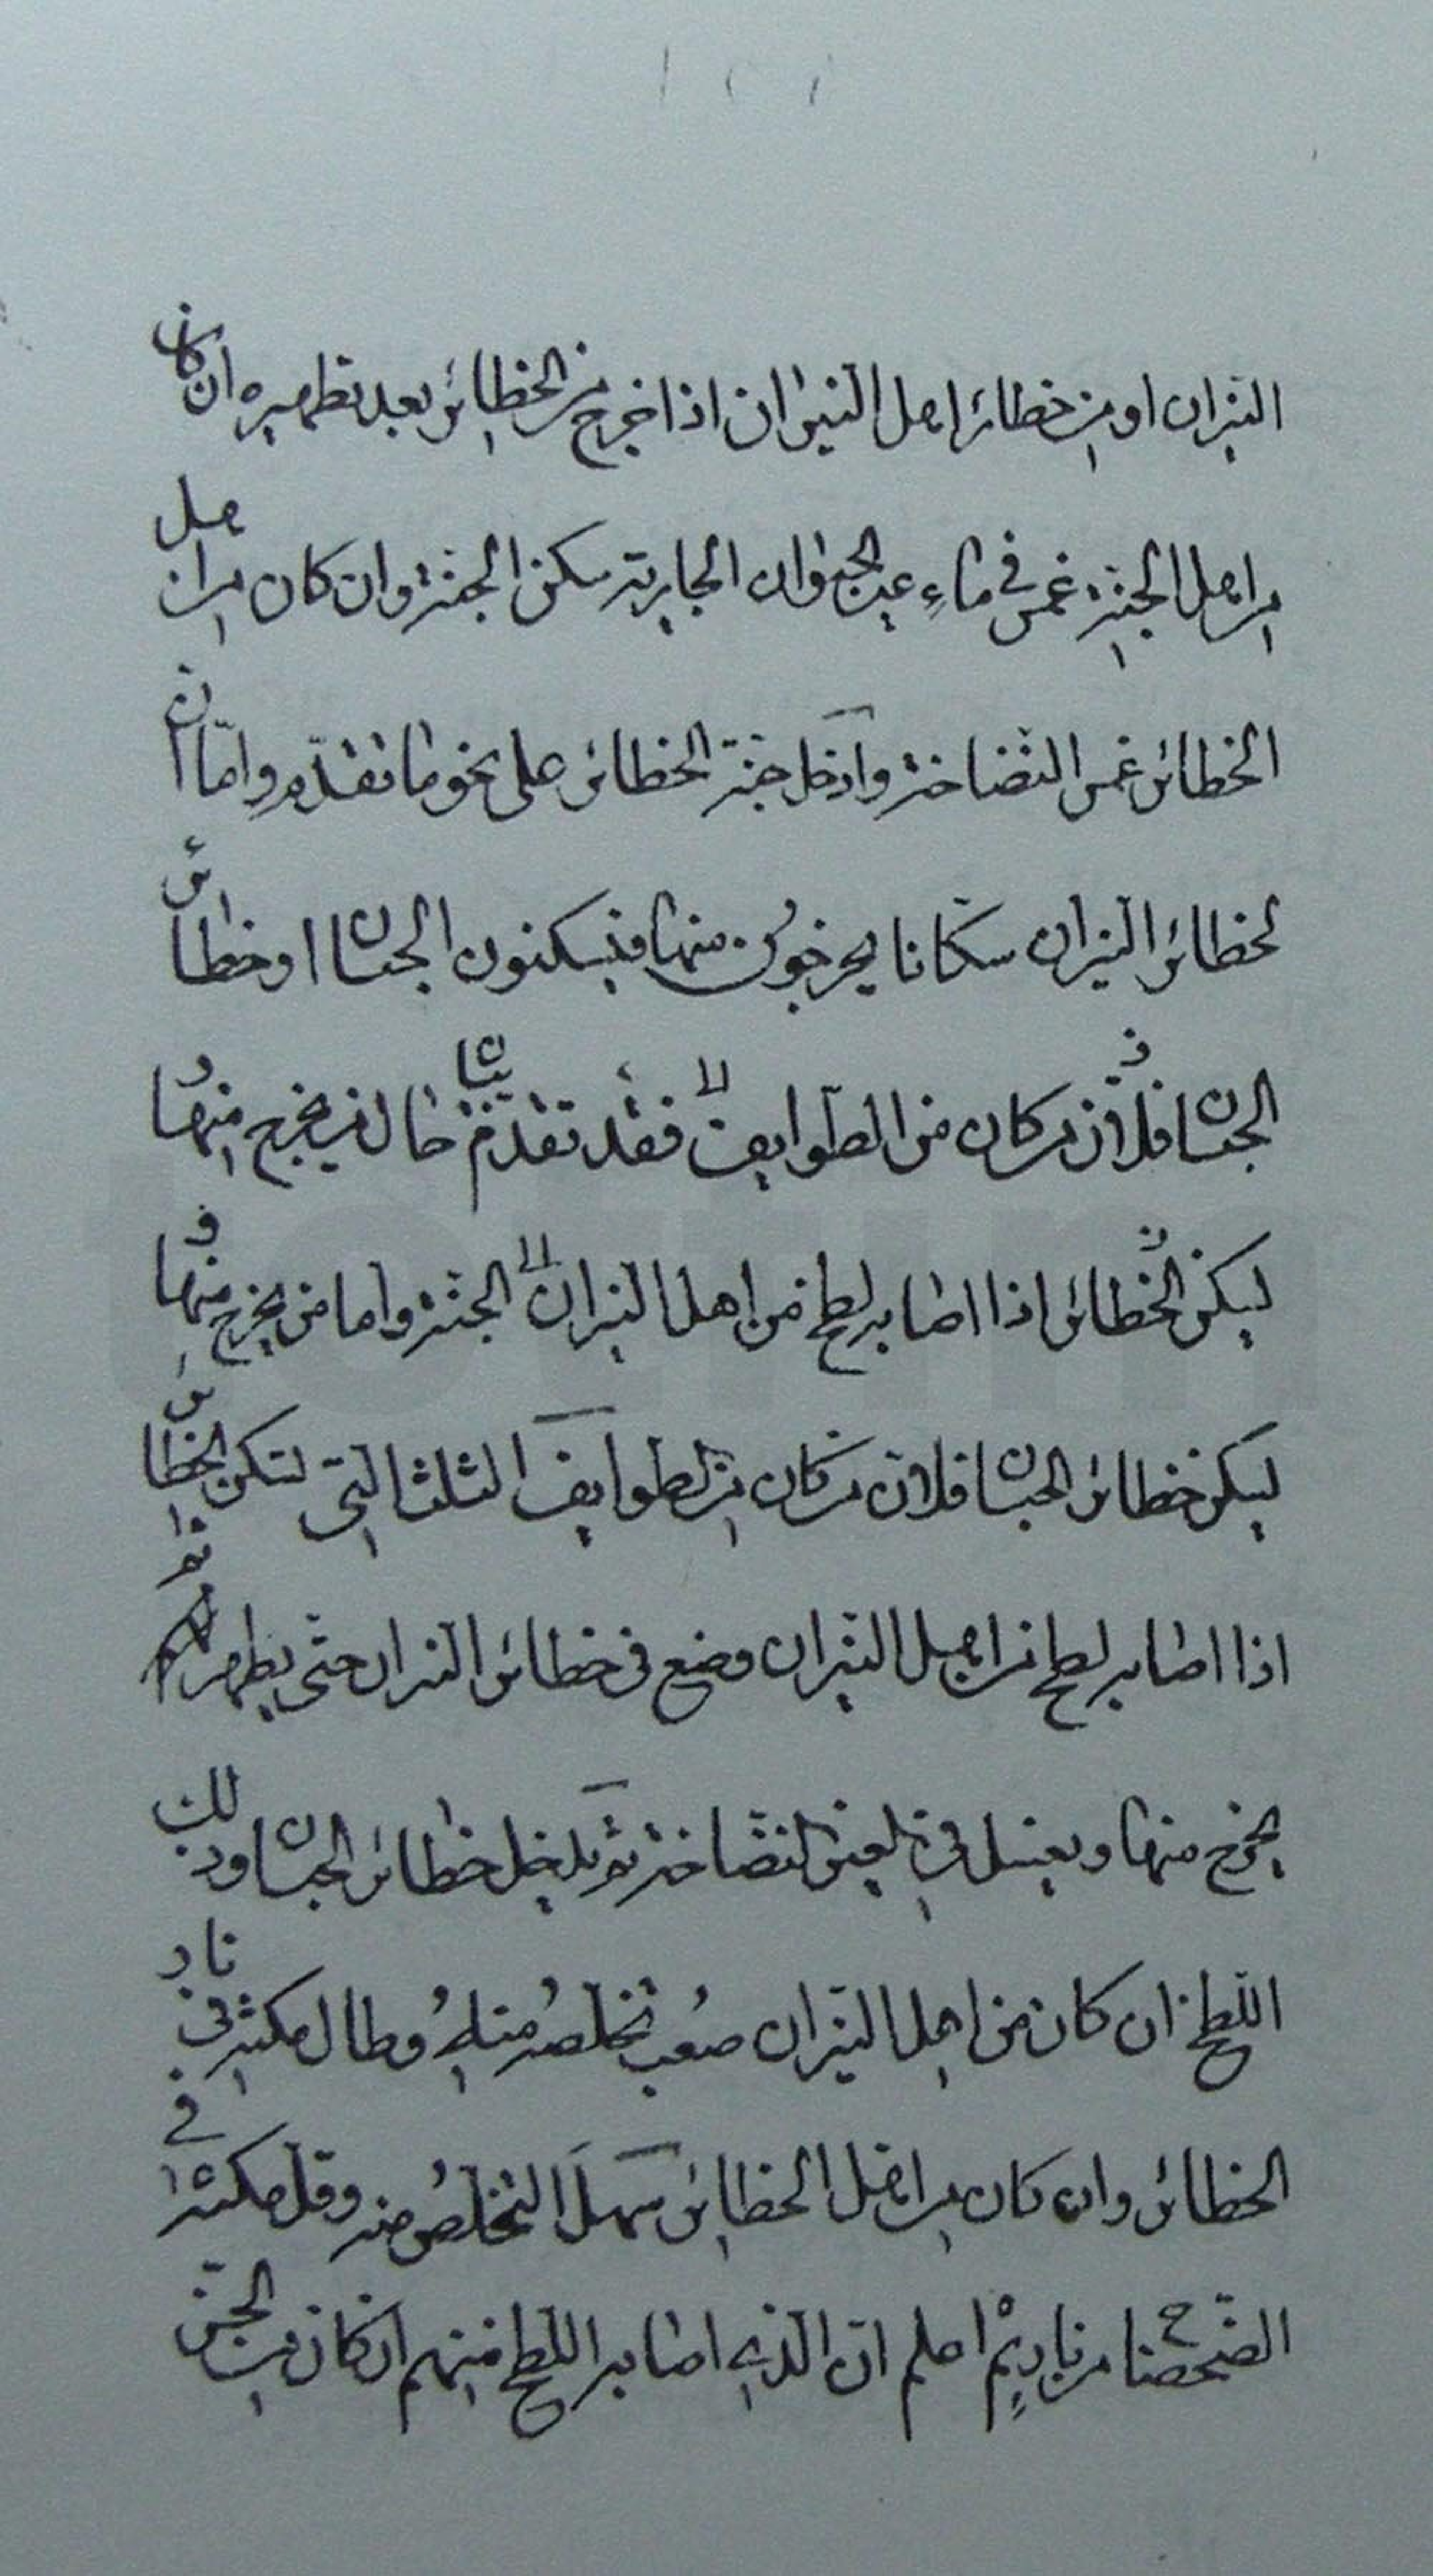 النيران او من خطائر اهل النيران اذا خرج من الخطائر بعد تطهيره ان كان
من اهل الجنة غمس في ماء عين الحيوان الجارية سكن الجنة وان كان من اهل
الخطائر غمس النضاخة وادخل جنة الخطائر على نحو ما تقدم واما ان
لخطائر النيران سكانا يخرجون منها فيسكنون الجنان او خطائر
الجنان فلان من كان من الطوايف فقد تقدم بيان حال من يخرج منها و
يسكن الخطائر اذا اصابه لطخ من اهل النيران الجنة واما من يخرج منها و
يسكن خطائر الجنان فلان من كان من الطوايف الثلث التي تسكن الخطائر
اذا اصابه لطخ من اهل النيران وضع في خطائر النيران حتى يطهر ثم
يخرج منها ويغسل في العين النضاخة ثم يدخل خطائر الجنان وذلك
اللطخ ان كان من اهل النيران صعب تخلصه منه وطال مكثه في نار
الخطائر وان كان من اهل الخطائر سهل التخلص منه وقل مكثه في
الضحضاح من نار ثم اعلم ان الذي اصابه اللطخ منهم ان كان من الجن